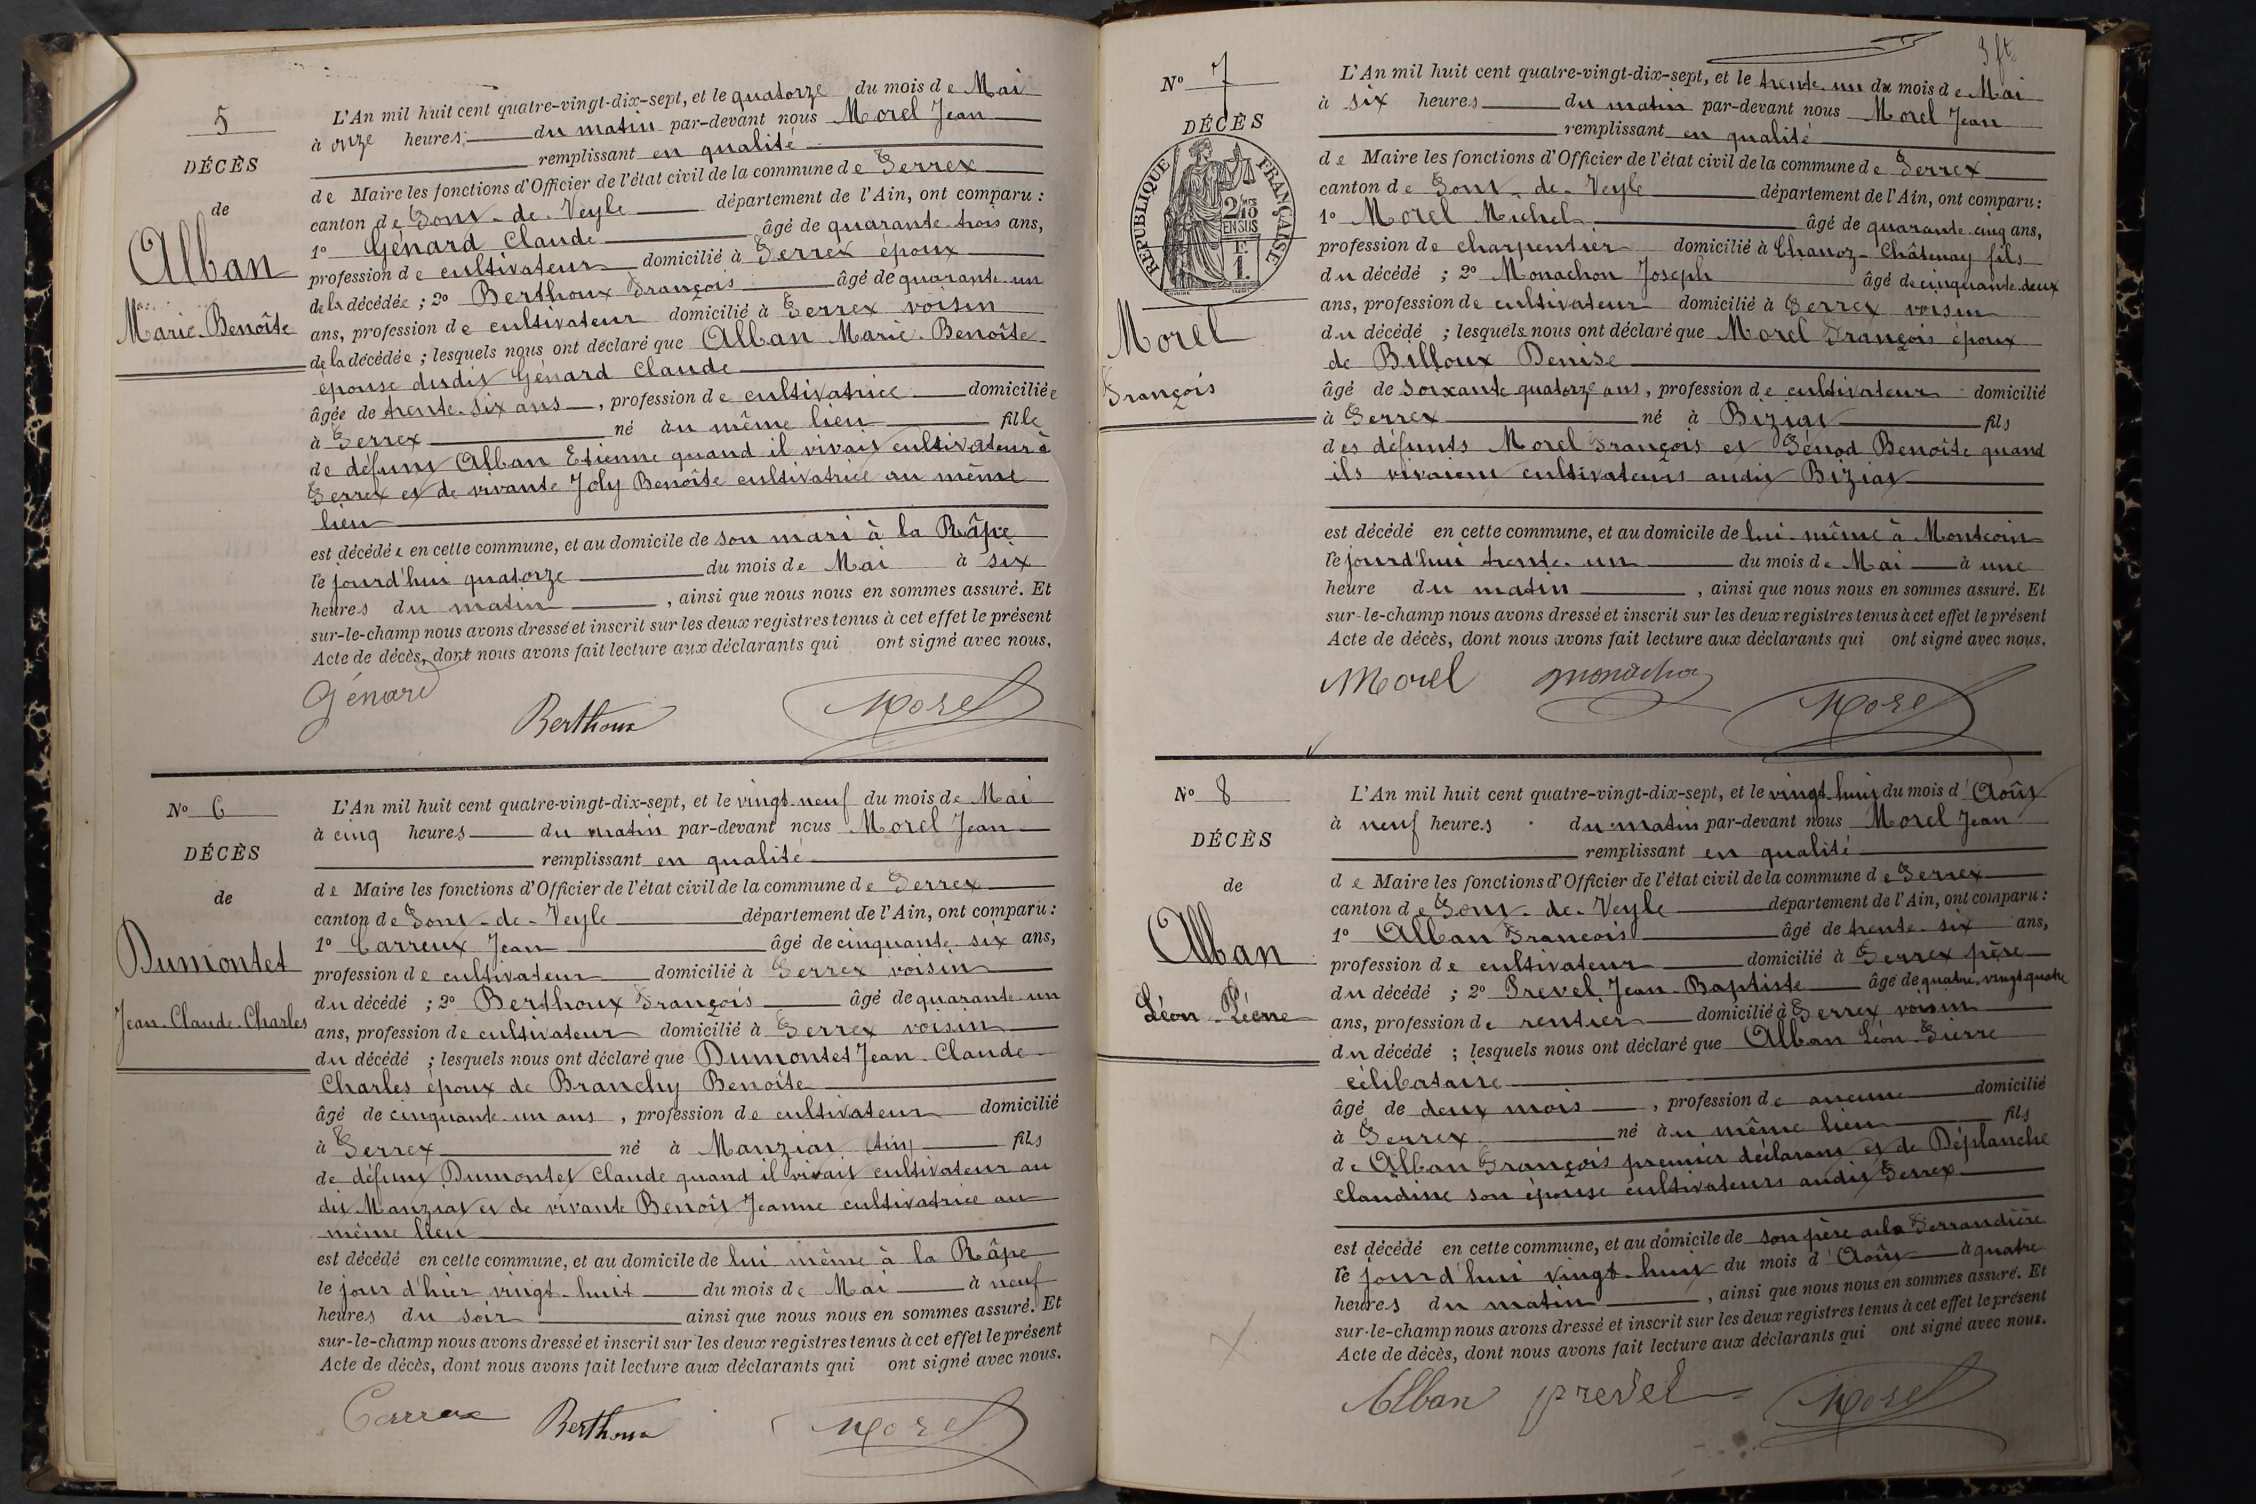 5
DÉCÈS
de
Alban
Marie-Benoîte
L'An mil huit cent quatre-vingt-dix-sept, et le quatorze du mois de Mai
à onze heures du matin par-devant nous Morel Jean
remplissant en qualité
de Maire les fonctions d'Officier de l'état civil de la commune de Perrex
canton de Pont-de-Veyle département de l'Ain, ont comparu :
1º Génard Claude âgé de quarante-trois ans,
profession de cultivateur domicilié à Perrex époux
de la décédée ; 2º Berthoux François âgé de quarante-un
ans, profession de cultivateur domicilié à Perrex voisin
de la décédée ; lesquels nous ont déclaré que Alban Marie-Benoîte
épouse dudit Génard Claude
âgée de trente-six ans, profession de cultivatrice domiciliée
à Perrex né au même lieu fille
de défunt Alban Etienne quand il vivait cultivateur à
Perrex et de vivante Joly Benoîte cultivatrice au même
lieu
est décédée en cette commune, et au domicile de son mari à la Râpe
le jourd'hui quatorze du mois de Mai à six
heures du matin, ainsi que nous nous en sommes assuré. Et
sur-le-champ nous avons dressé et inscrit sur les deux registres tenus à cet effet le présent
Acte de décès, dont nous avons fait lecture aux déclarants qui ont signé avec nous.
Génard Berthoux Morel
Nº 6
DÉCÈS
de
Dumontet
Jean-Claude-Charles
L'An mil huit cent quatre-vingt-dix-sept, et le vingt-neuf du mois de Mai
à cinq heures du matin par-devant nous Morel Jean
remplissant en qualité
de Maire les fonctions d'Officier de l'état civil de la commune de Perrex
canton de Pont-de-Veyle département de l'Ain, ont comparu :
1º Carreux Jean âgé de cinquante-six ans,
profession de cultivateur domicilié à Perrex voisin
du décédé ; 2º Berthoux François âgé de quarante-un
ans, profession de cultivateur domicilié à Perrex voisin
du décédé ; lesquels nous ont déclaré que Dumontet Jean-Claude-
Charles époux de Branchy Benoîte
âgé de cinquante-un ans, profession de cultivateur domicilié
à Perrex né à Manziat Ain fils
de défunt Dumontet Claude quand il vivait cultivateur au
dit Manziat et de vivante Benoît Jeanne cultivatrice au
même lieu
est décédé en cette commune, et au domicile de lui même à la Râpe
le jour d'hier vingt-huit du mois de Mai à neuf
heures du soir ainsi que nous nous en sommes assuré. Et
sur-le-champ nous avons dressé et inscrit sur les deux registres tenus à cet effet le présent
Acte de décès, dont nous avons fait lecture aux déclarants qui ont signé avec nous.
Carreux Berthoux Morel
Nº 7
DÉCÈS
RÉPUBLIQUE FRANÇAISE
2/10 EN SUS
F
1.
Morel
François
L'An mil huit cent quatre-vingt-dix-sept, et le trente-un du mois de Mai
à six heures du matin par-devant nous Morel Jean
remplissant en qualité
de Maire les fonctions d'Officier de l'état civil de la commune de Perrex
canton de Pont-de-Veyle département de l'Ain, ont comparu :
1º Morel Michel âgé de quarante-cinq ans,
profession de charpentier domicilié à Chanoz-Châtenay fils
du décédé ; 2º Monachon Joseph âgé de cinquante-deux
ans, profession de cultivateur domicilié à Perrex voisin
du décédé ; lesquels nous ont déclaré que Morel François époux
de Billoux Denise
âgé de soixante quatorze ans, profession de cultivateur domicilié
à Perrex né à Biziat fils
des défunts Morel François et Pénod Benoîte quand
ils vivaient cultivateurs audit Biziat
est décédé en cette commune, et au domicile de lui-même à Montcoin
le jourd'hui trente-un du mois de Mai à une
heure du matin, ainsi que nous nous en sommes assuré. Et
sur-le-champ nous avons dressé et inscrit sur les deux registres tenus à cet effet le présent
Acte de décès, dont nous avons fait lecture aux déclarants qui ont signé avec nous.
Morel monachon Morel
Nº 8
DÉCÈS
de
Alban
Léon-Pierre
L'An mil huit cent quatre-vingt-dix-sept, et le vingt-huit du mois d'Août
à neuf heures du matin par-devant nous Morel Jean
remplissant en qualité
de Maire les fonctions d'Officier de l'état civil de la commune de Perrex
canton de Pont-de-Veyle département de l'Ain, ont comparu :
1º Alban François âgé de trente-six ans,
profession de cultivateur domicilié à Perrex père
du décédé ; 2º Prevel Jean-Baptiste âgé de quatre-vingt-quatre
ans, profession de rentier domicilié à Perrex voisin
du décédé ; lesquels nous ont déclaré que Alban Léon-Pierre
célibataire
âgé de deux mois, profession de aucune domicilié
à Perrex né au même lieu fils
de Alban François premier déclarant et de Déplanche
Claudine son épouse cultivateurs audit Perrex
est décédé en cette commune, et au domicile de son père à la Perrandière
le jourd'hui vingt-huit du mois d'Août à quatre
heures du matin, ainsi que nous nous en sommes assuré. Et
sur-le-champ nous avons dressé et inscrit sur les deux registres tenus à cet effet le présent
Acte de décès, dont nous avons fait lecture aux déclarants qui ont signé avec nous.
Alban prevel Morel